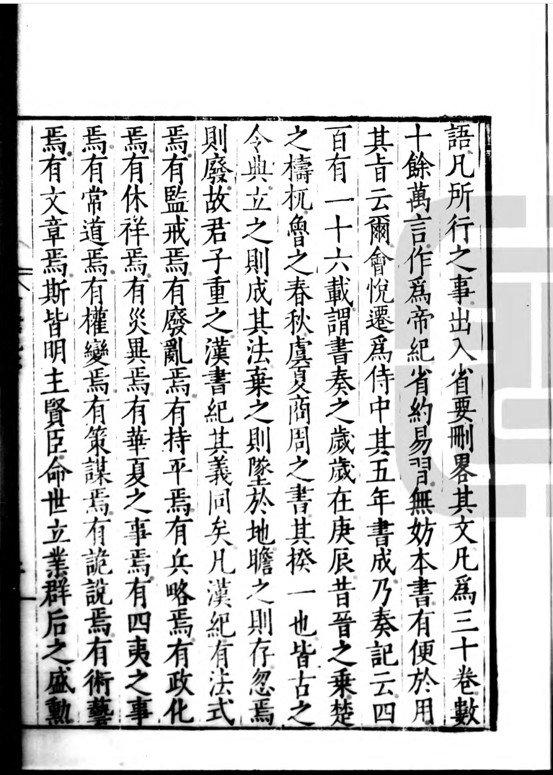 語凡所行之事出入省要刪畧其文凡爲三十卷數
十餘萬言作爲帝紀省約易習無妨本書有便於用
其旨云爾會悅遷爲侍中其五年書成乃奏記云四
百有一十六載謂書奏之歲歲在庚辰昔晉之乘楚
之檮杌魯之春秋虞夏商周之書其揆一也皆古之
令典立之則成其法棄之則墜於地瞻之則存忽焉
則廢故君子重之漢書紀其義同矣凡漢紀有法式
焉有監戒焉有廢亂焉有持平焉有兵略焉有政化
焉有休祥焉有災異焉有華夏之事焉有四夷之事
焉有常道焉有權變焉有策謀焉有詭說焉有術藝
焉有文章焉斯皆明主賢臣命世立業群后之盛勳